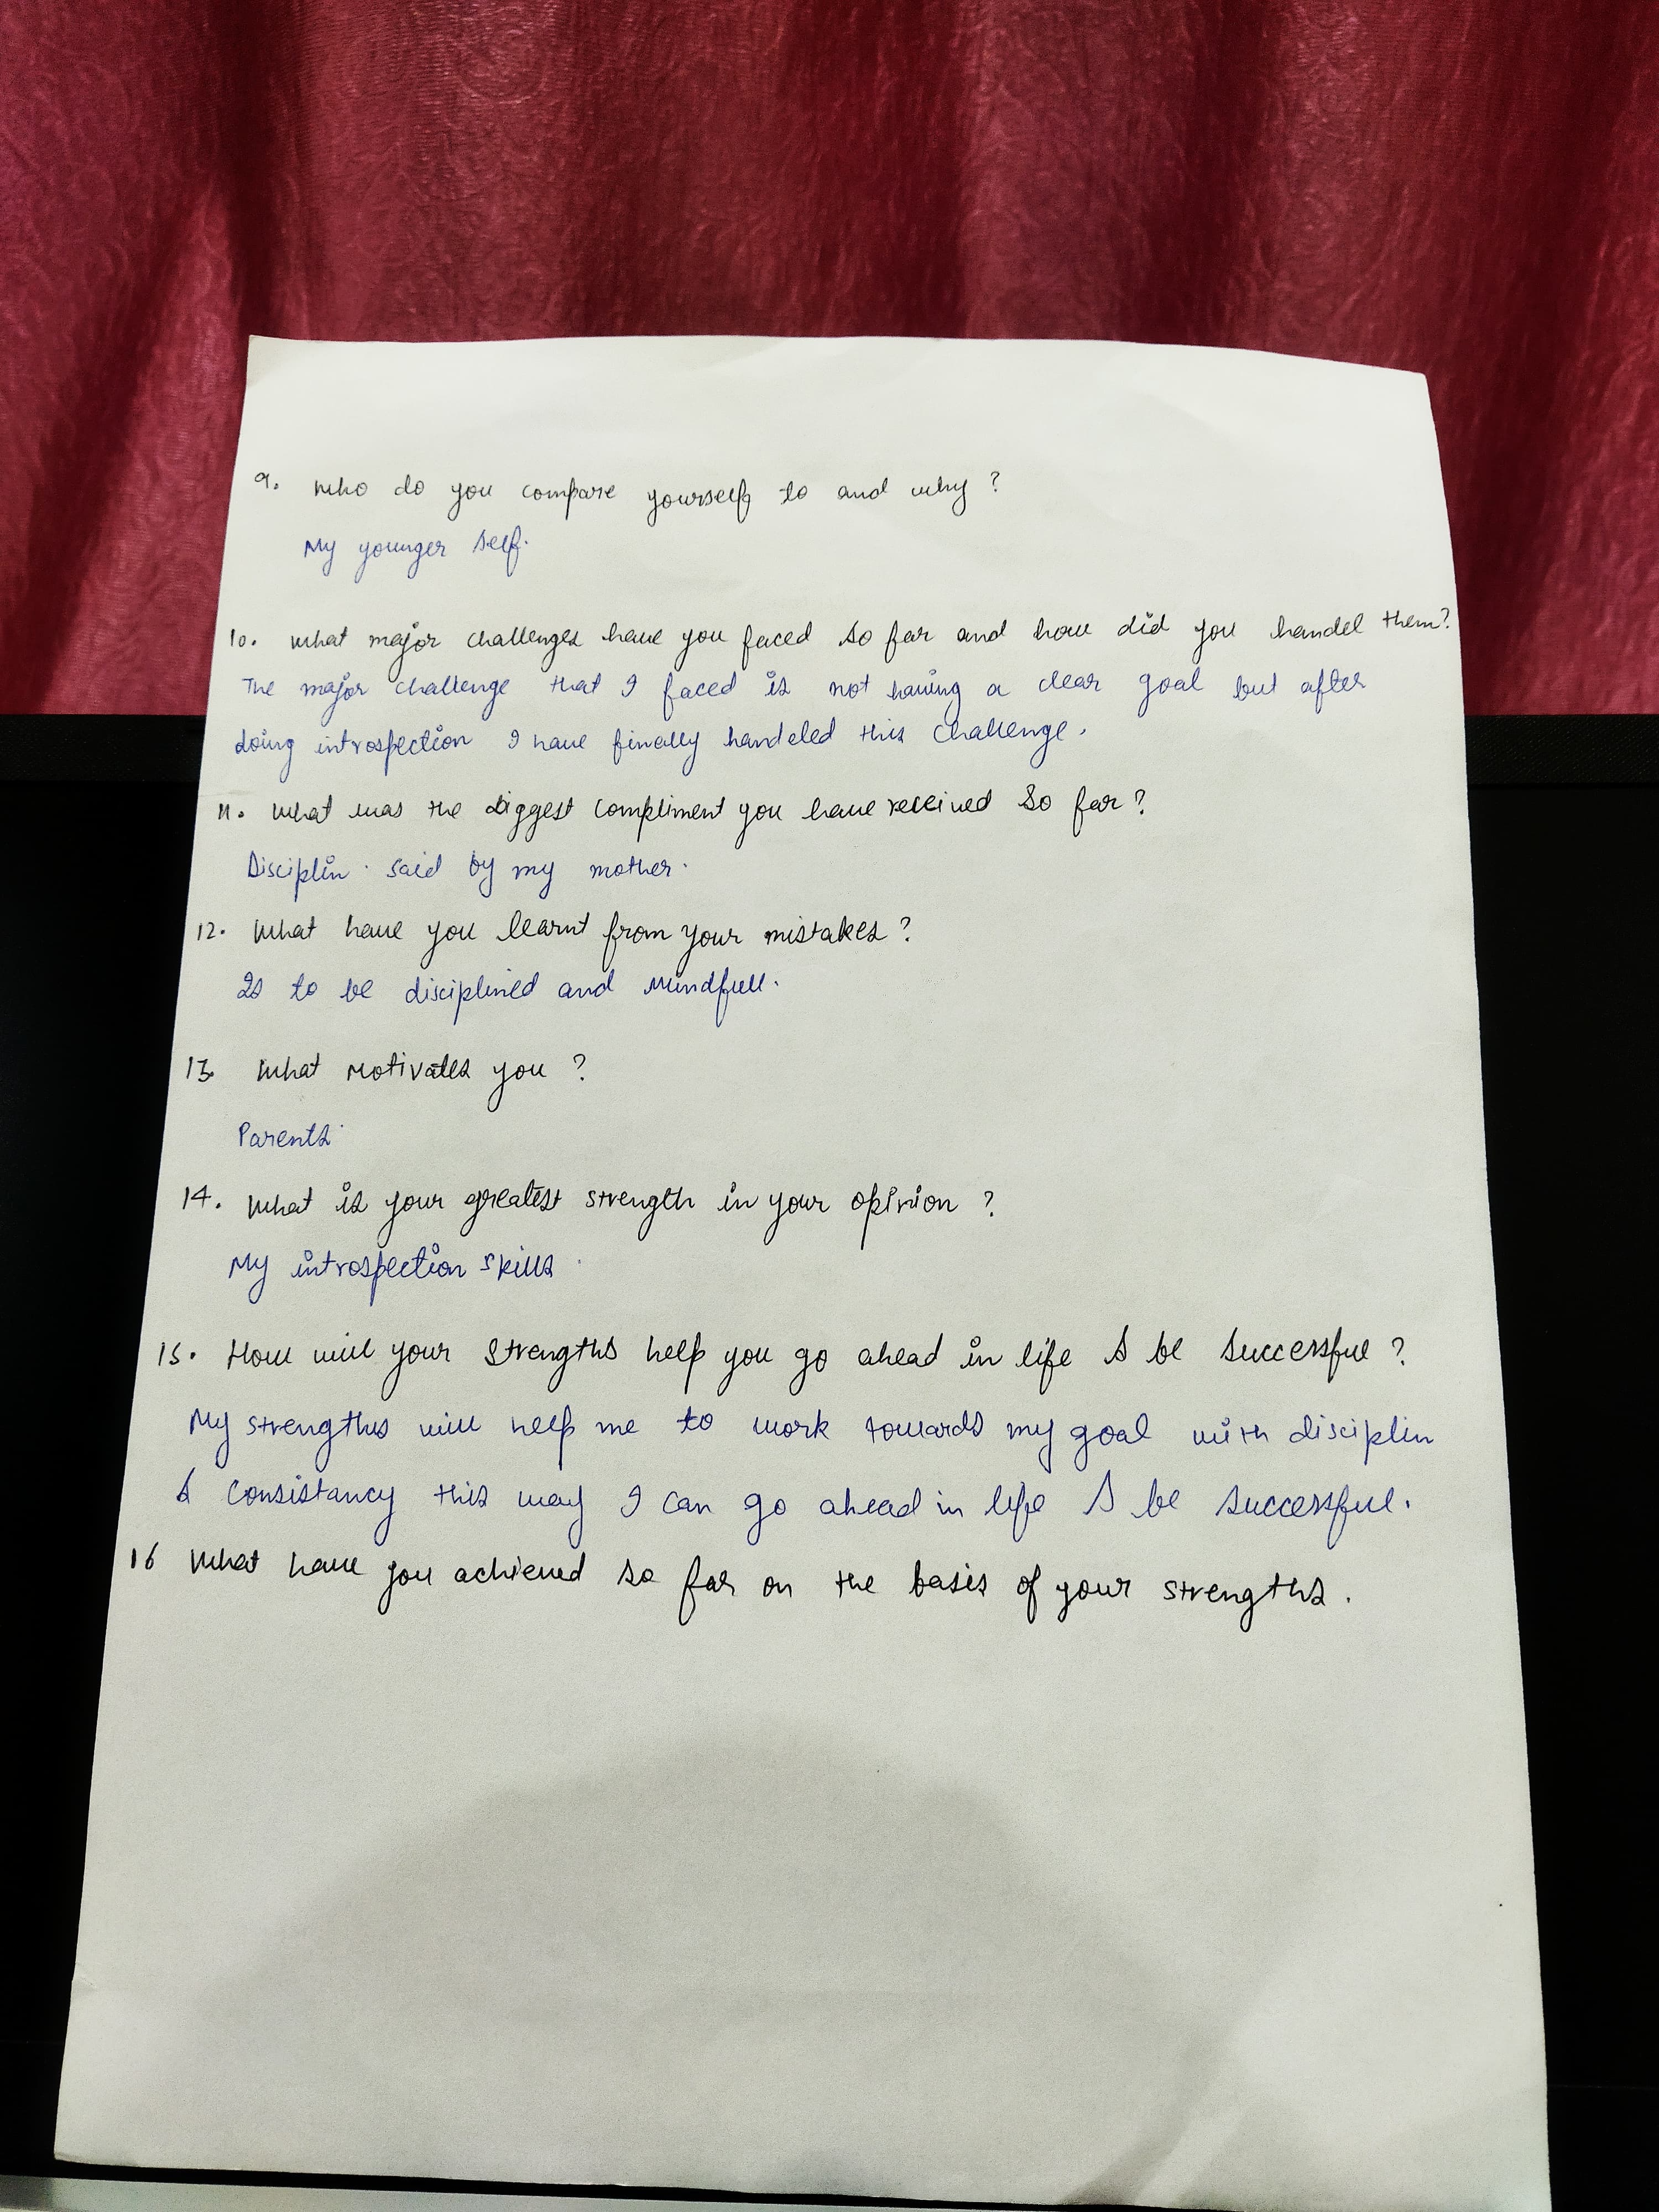 9. Who do you compare yourself to and why ?
My younger self.
10. What major challenges have you faced so far and how did you handel them?
The major challenge that I faced is not having a clear goal but after
doing introspection I have finally handeled this challenge.
11. What was the biggest compliment you have received so far ?
Disciplin. said by my mother.
12. What have you learnt from your mistakes ?
Is to be disciplined and mindfull.
13. What motivates you ?
Parents.
14. What is your greatest strength in your opinion ?
My introspection skills.
15. How will your strengths help you go ahead in life & be successful ?
My strengths will help me to work towards my goal with disciplin
& consistancy this way I can go ahead in life & be successful.
16 What have you achieved so far on the basis of your strengths.